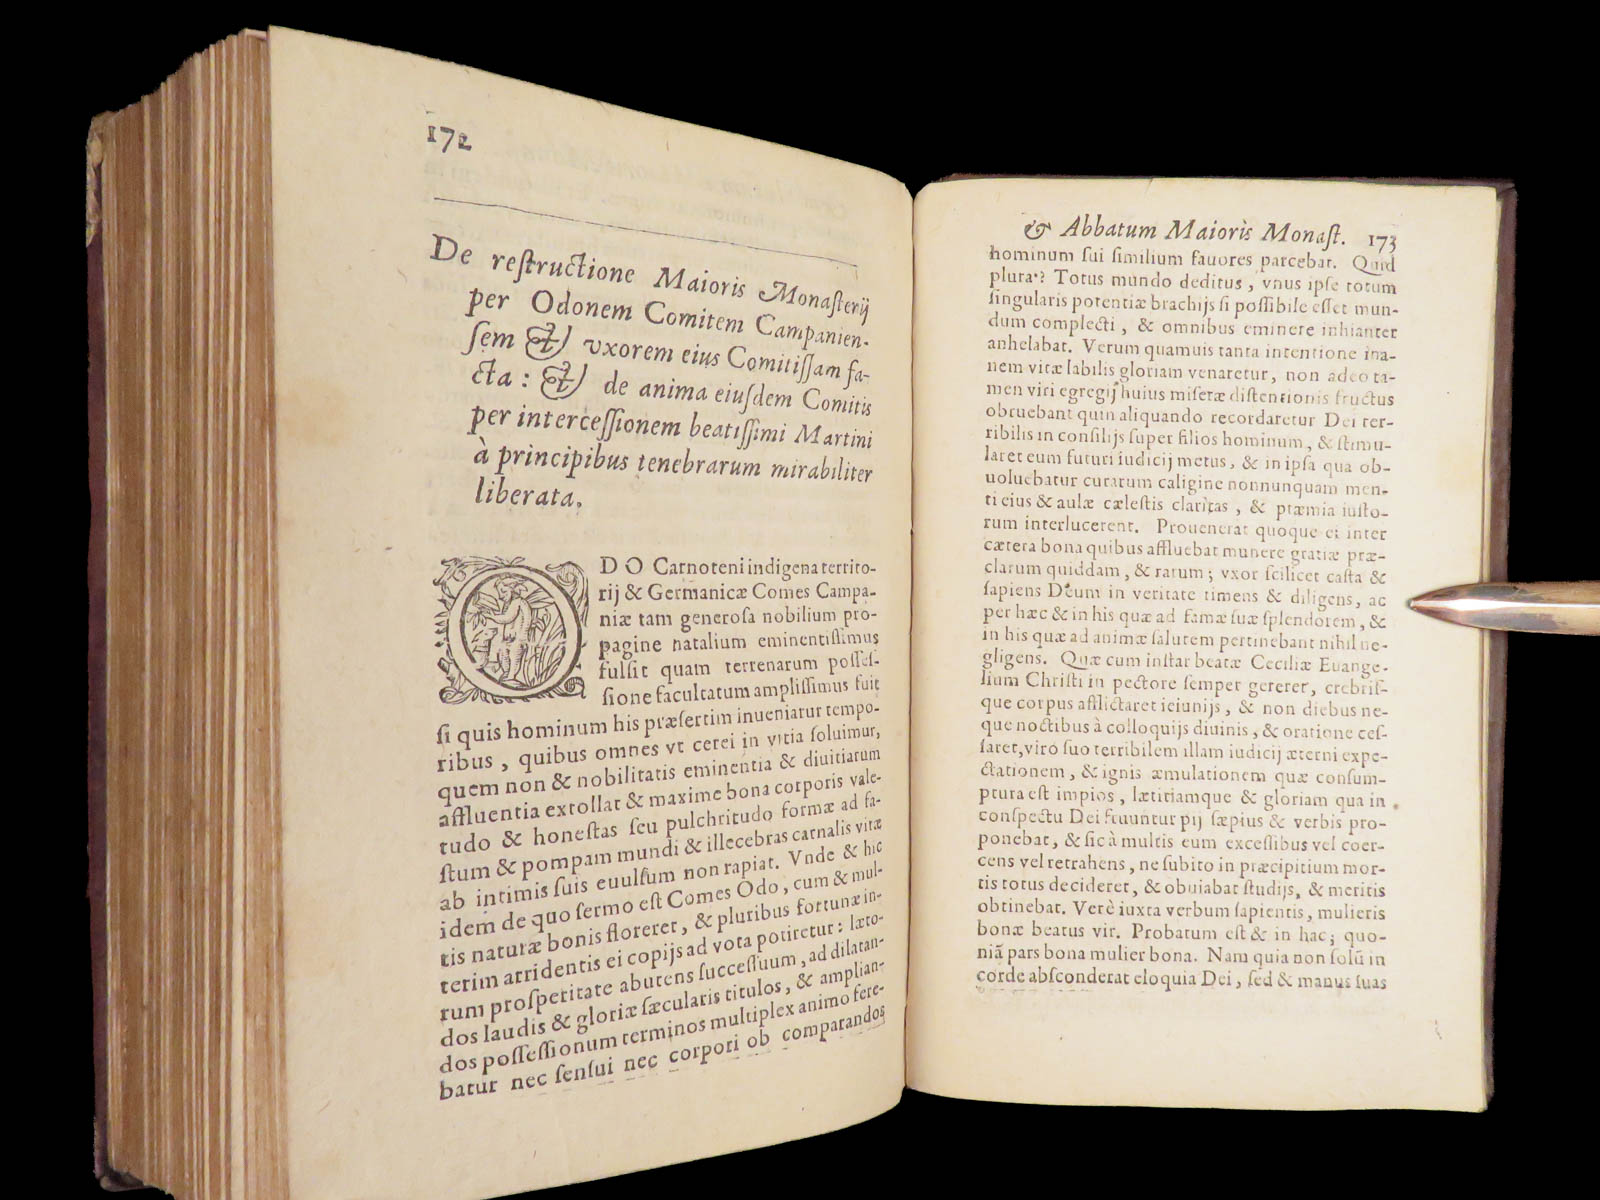 172
De reſtructione Maioris Monaſterij
per Odonem Comitem Campanien-
ſem & vxorem eius Comitiſſam fa-
cta : & de anima eiuſdem Comitis
per interceſſionem beatiſſimi Martini
à principibus tenebrarum mirabiliter
liberata.
ODO Carnoteni indigena territo-
rij & Germanicæ Comes Campa-
niæ tam generoſa nobilium pro-
pagine natalium eminentiſſimus
fulſit quam terrenarum poſſeſ-
ſione facultatum ampliſſimus fuit
ſi quis hominum his præſertim inueniatur tempo-
ribus , quibus omnes vt cerei in vitia ſoluimur,
quem non & nobilitatis eminentia & diuitiarum
affluentia extollat & maxime bona corporis vale-
tudo & honeſtas ſeu pulchritudo formæ ad fa-
ſtum & pompam mundi & illecebras carnalis vitæ
ab intimis ſuis euulſum non rapiat. Vnde & hic
idem de quo ſermo eſt Comes Odo , cum & mul-
tis naturæ bonis floreret , & pluribus fortunæ in-
terim arridentis ei copijs ad vota potiretur : læto-
rum proſperitate abutens ſucceſſuum , ad dilatan-
dos laudis & gloriæ ſæcularis titulos , & amplian-
dos poſſeſſionum terminos multiplex animo fere-
batur nec ſenſui nec corpori ob comparandos
& Abbatum Maioris Monaſt. 173
hominum ſui ſimilium fauores parcebat. Quid
plura? Totus mundo deditus , vnus ipſe totum
ſingularis potentiæ brachijs ſi poſſibile eſſet mun-
dum complecti , & omnibus eminere inhianter
anhelabat. Verum quamuis tanta intentione ina-
nem vitæ labilis gloriam venaretur, non adeo ta-
men viri egregij huius miſeræ diſtentionis fructus
obruebant quin aliquando recordaretur Dei ter-
ribilis in conſilijs ſuper filios hominum , & ſtimu-
laret eum futuri iudicij metus, & in ipſa qua ob-
uoluebatur curarum caligine nonnunquam men-
ti eius & aulæ cæleſtis claritas , & præmia iuſto-
rum interlucerent. Prouenerat quoque ei inter
cætera bona quibus affluebat munere gratiæ præ-
clarum quiddam , & rarum ; vxor ſcilicet caſta &
ſapiens Deum in veritate timens & diligens, ac
per hæc & in his quæ ad famæ ſuæ ſplendorem, &
in his quæ ad animæ ſalutem pertinebant nihil ne-
gligens. Quæ cum inſtar beatæ Ceciliæ Euange-
lium Chriſti in pectore ſemper gereret, crebriſ-
que corpus afflictaret ieiunijs , & non diebus ne-
que noctibus à colloquijs diuinis , & oratione ceſ-
ſaret, viro ſuo terribilem illam iudicij æterni expe-
ctationem , & ignis æmulationem quæ conſum-
ptura eſt impios , lætitiamque & gloriam qua in
conſpectu Dei fruuntur pij ſæpius & verbis pro-
ponebat, & ſic à multis eum exceſſibus vel coer-
cens vel retrahens, ne ſubito in præcipitium mor-
tis totus decideret, & obuiabat ſtudijs, & meritis
obtinebat. Verè iuxta verbum ſapientis, mulieris
bonæ beatus vir. Probatum eſt & in hac; quo-
niā pars bona mulier bona. Nam quia non ſolū in
corde abſconderat eloquia Dei , ſed & manus ſuas